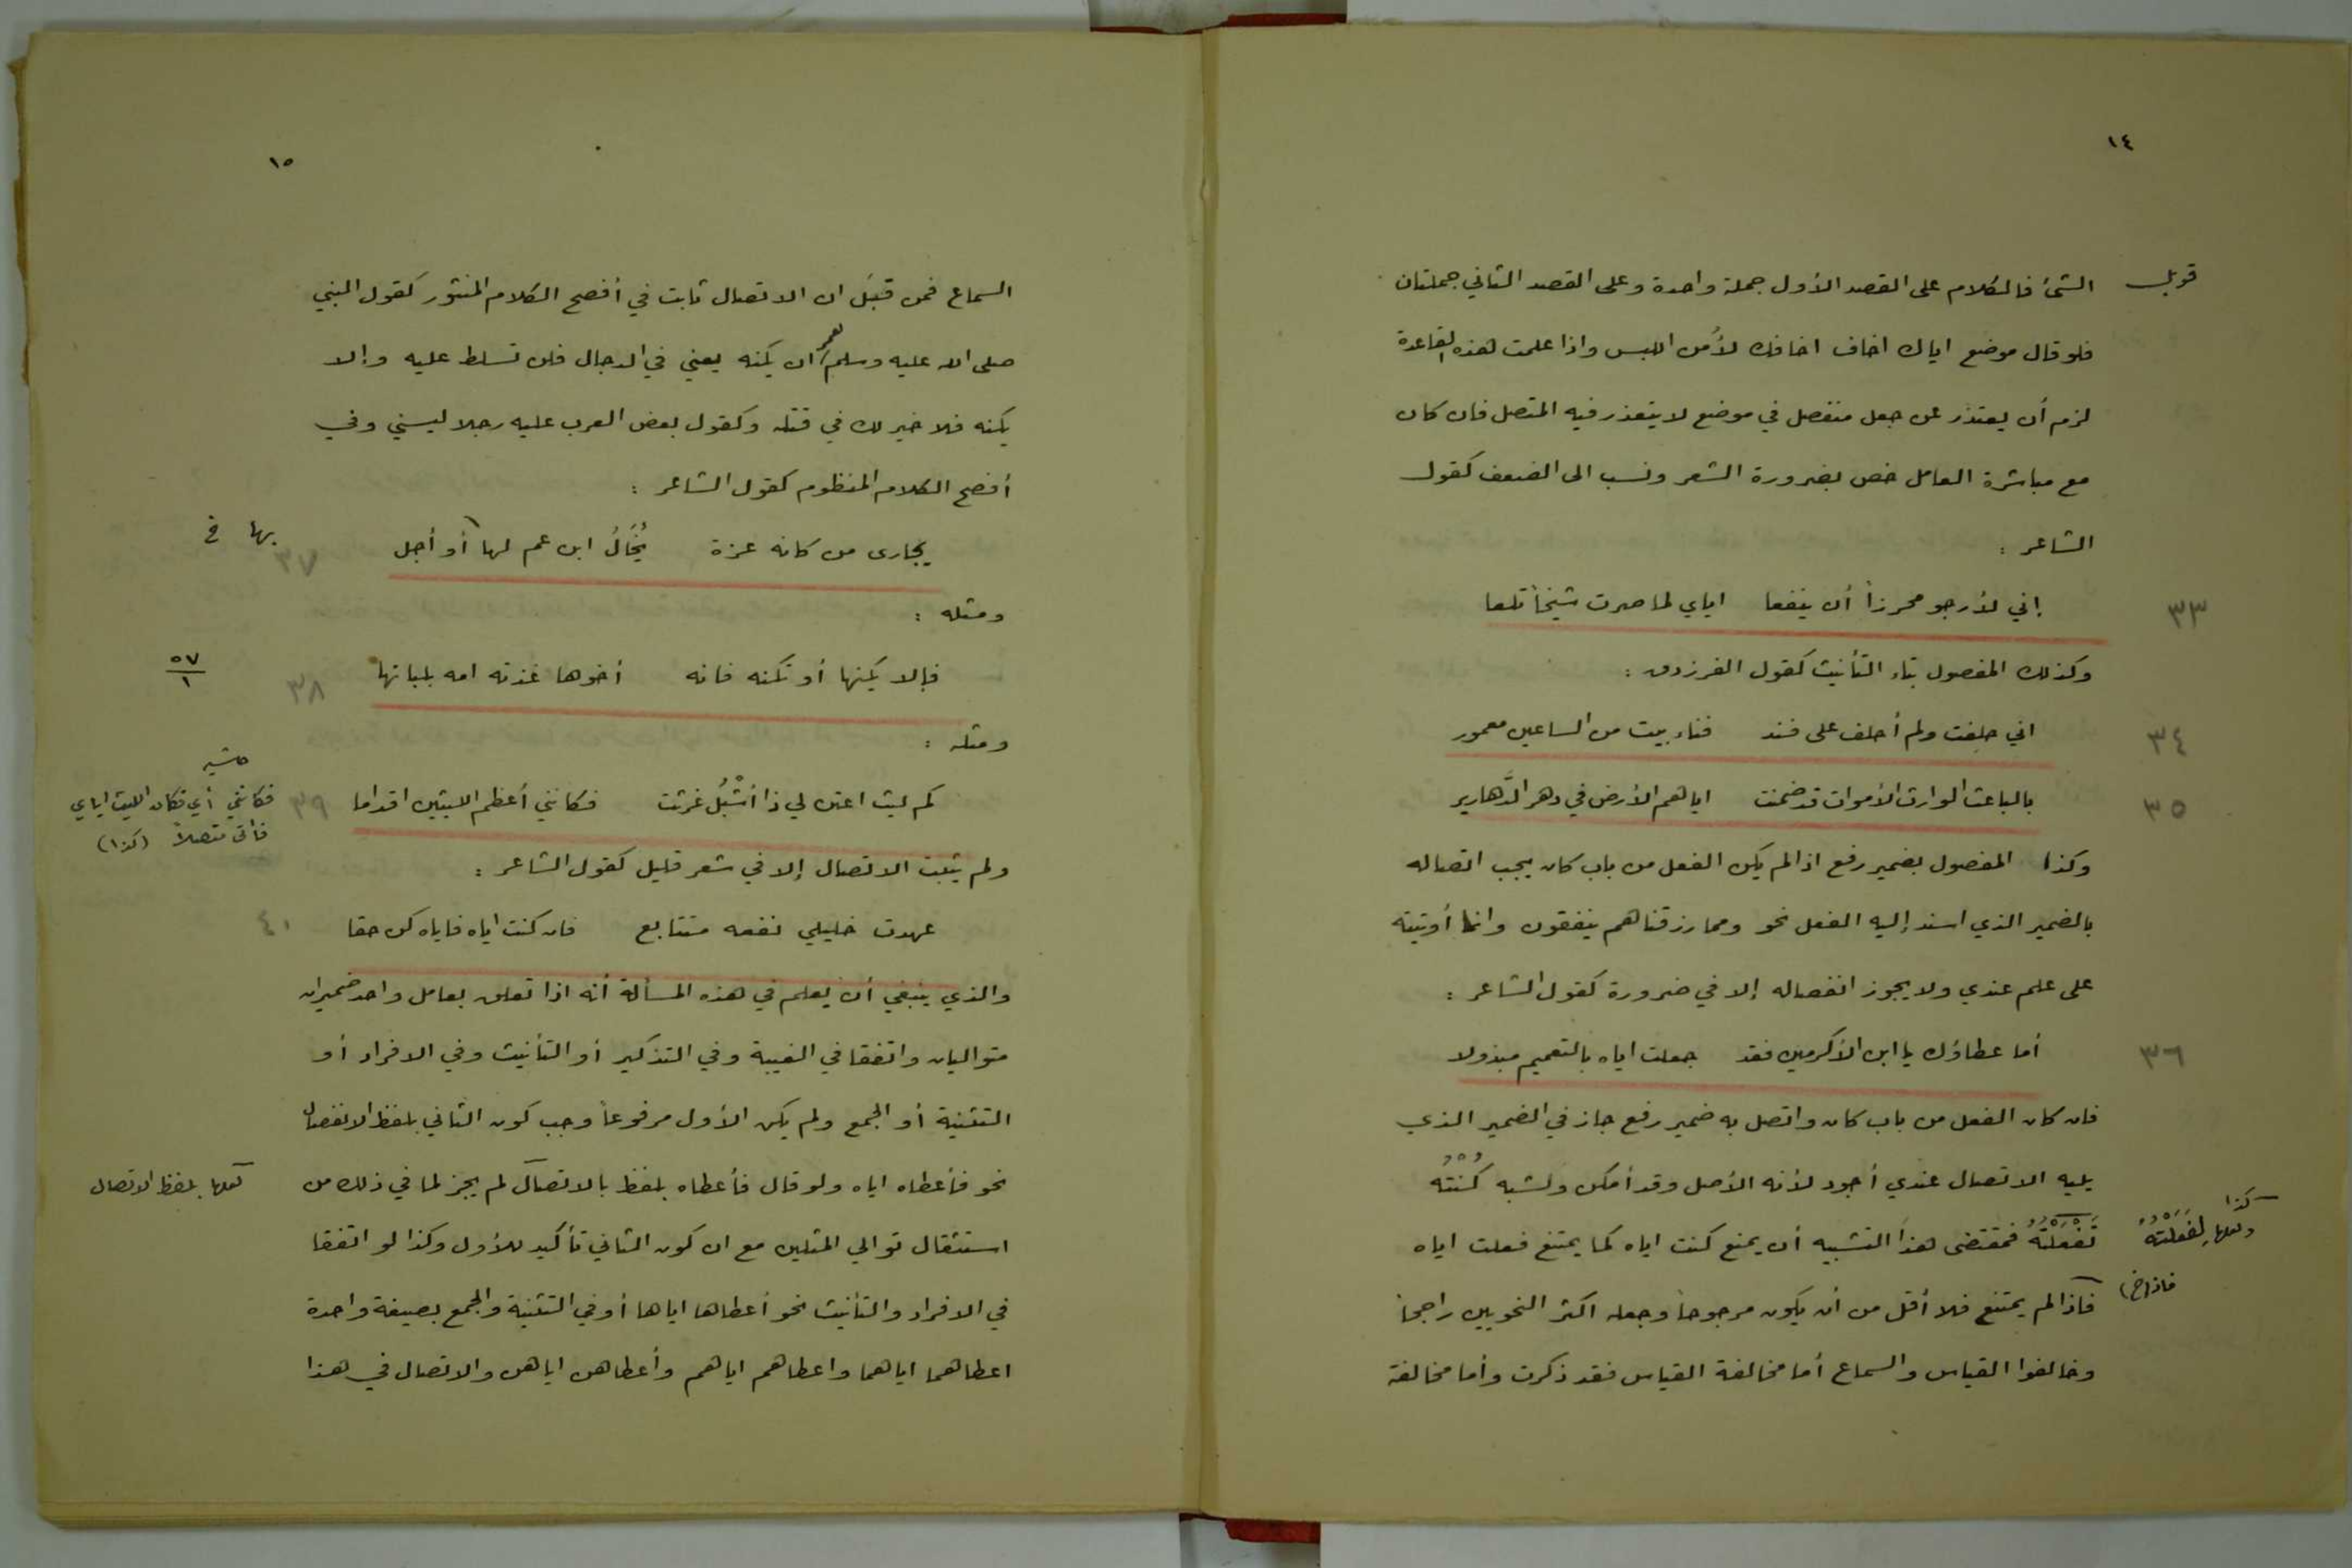 ١٤
قوبل
الشئ فالكلام على القصد الأول جملة واحدة وعلى القصد الثاني جملتان
فلو قال موضع اياك اخاف اخافك لأمن اللبس واذا علمت هذه القاعدة
لزم أن يعتذر عن جعل منفصل في موضع لا يتعذر فيه المتصل فان كان
مع مباشرة العامل خص بضرورة الشعر ونسب الى الضعف كقول
الشاعر :
إني لأرجو محرزاً أن ينفعا اياي لما صرت شيخاً قلعا ٣٣
وكذلك المفصول بتاء التأنيث كقول الفرزدق :
اني حلفت ولم أحلف على فند فناء بيت من الساعين معمور ٣٤
بالباعث الوارث الأموات قد ضمنت اياهم الأرض في دهر الدَّهارير ٣٥
وكذا المفصول بضمير رفع اذا لم يكن الفعل من باب كان يجب اتصاله
بالضمير الذي اسند إليه الفعل نحو ومما رزقناهم ينفقون وانما أوتيته
على علم عندي ولا يجوز انفصاله إلا في ضرورة كقول الشاعر :
أما عطاؤك يا ابن الأكرمين فقد جعلت اياه بالتعميم مبذولا ٣٦
فان كان الفعل من باب كان واتصل به ضمير رفع جاز في الضمير الذي
يليه الاتصال عندي أجود لأنه الأصل وقد أمكن ولشبه كُنْتُه
تَفْعَلْتُهُ فمقتضى هذا التشبيه أن يمنع كنت اياه كما يمتنع فعلت اياه
كذا
ولعلها بِفَعَلْتُهُ
فاذا لم يمتنع فلا أقل من أن يكون مرجوحاً وجعله اكثر النحويين راجحاً
فاذ (خ)
وخالفوا القياس والسماع أما مخالفة القياس فقد ذكرت وأما مخالفة
١٥
السماع فمن قبَل ان الاتصال ثابت في أفصح الكلام المنثور كقول النبي
صلى الله عليه وسلم لعمر ان يكنه يعني في الدجال فلن تسلط عليه وإلا
يكنه فلا خير لك في قتله وكقول بعض العرب عليه رجلا ليسني وفي
أفصح الكلام المنظوم كقول الشاعر :
يجارى من كانه عزة يُخَالُ ابن عم لها أو أجل ٣٧
بها خ
ومثله :
فإلا يكنها أو تكنه فانه أخوها غذته امه بلبانها ٣٨
٥٧
١
ومثله :
كم ليث اعتن لي ذا أشْبُل غرثت فكانني أعظم الليثين اقداما ٣٩
حاشيه
فكانني أي فكان الليث اياي
فاتى متصلاً (كذا)
ولم يثبت الاتصال إلا في شعر قليل كقول الشاعر :
عهدت خليلي نفعه متتابع فان كنت اياه فاياه كن حقا ٤٠
والذي ينبغي أن يعلم في هذه المسألة أنه اذا تعلق بعامل واحد ضميران
متواليان واتفقا في الغيبة وفي التذكير أو التأنيث وفي الافراد أو
التثنية أو الجمع ولم يكن الأول مرفوعاً وجب كون الثاني بلفظ الانفصال
نحو فأعطاه اياه ولو قال فأعطاه بلفظ بالاتصال لم يجز لما في ذلك من
لعلها بلفظ الاتصال
استثقال توالي المثلين مع ان كون الثاني تأكيد للأول وكذا لو اتفقا
في الافراد والتأنيث نحو أعطاها اياها أو في التثنية والجمع بصيغة واحدة
اعطاهما اياهما واعطاهم اياهم وأعطاهن اياهن والاتصال في هذا